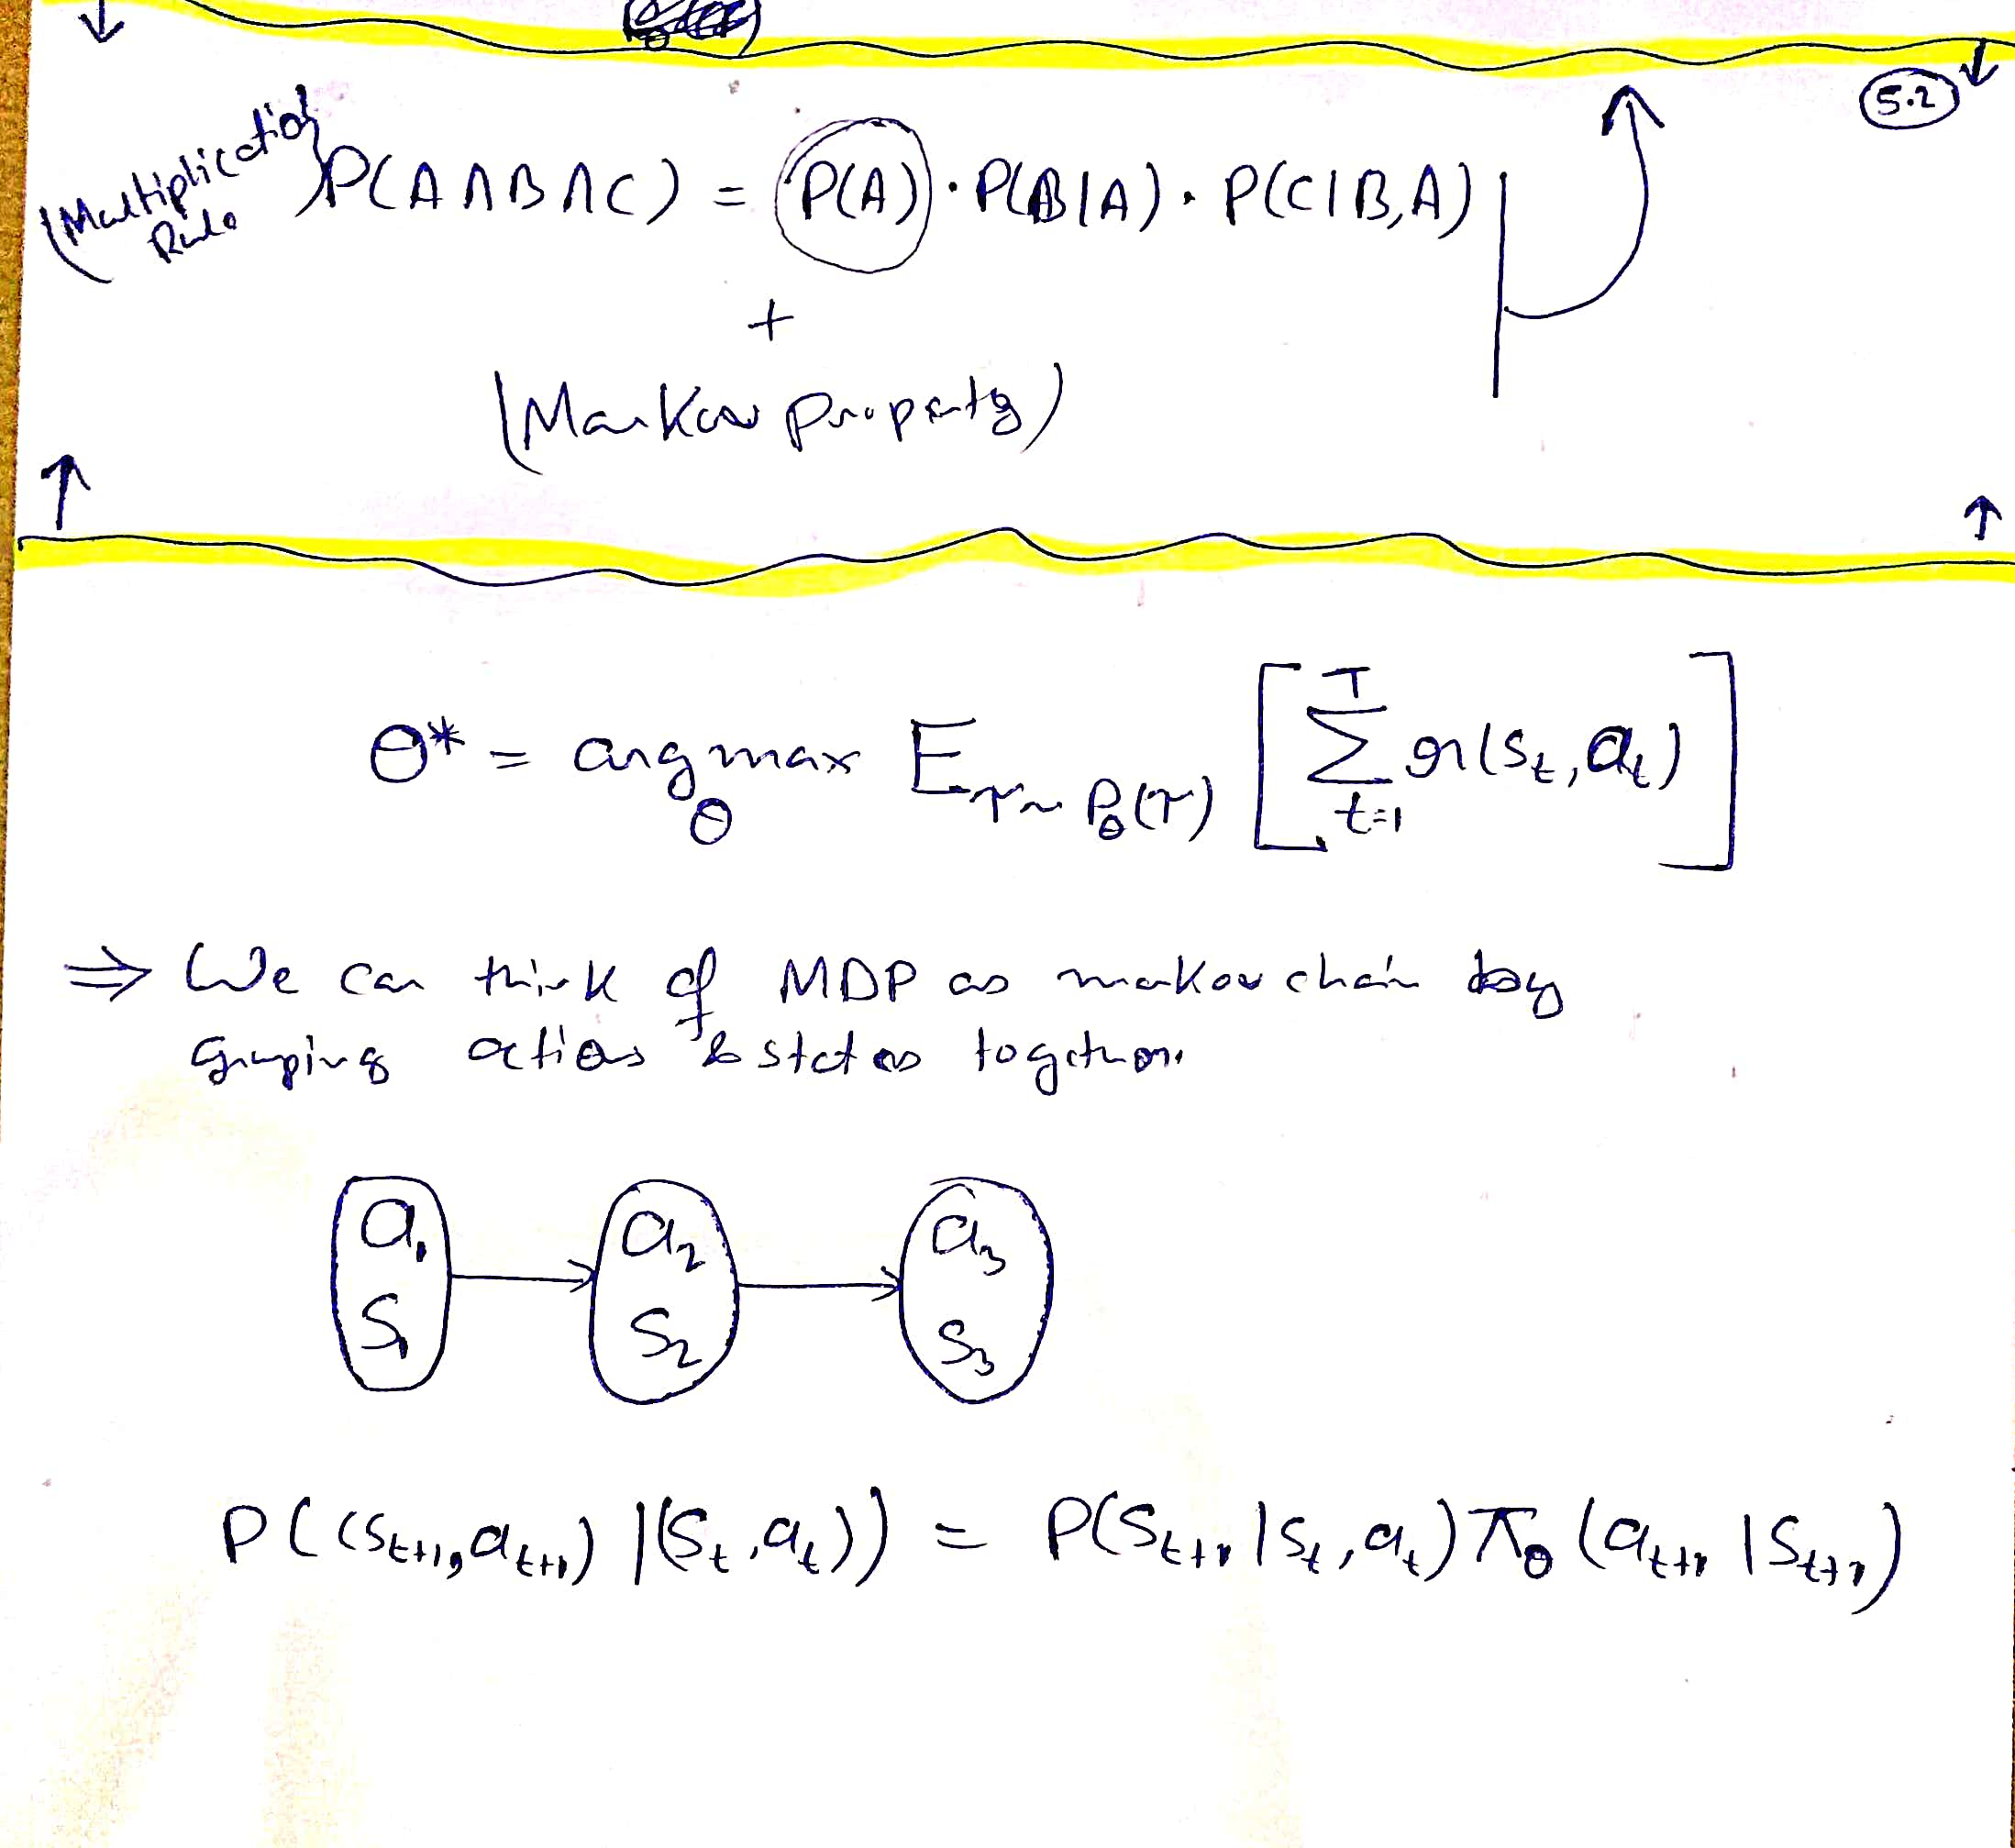 5.2
(Multiplication Rule) P(A∩B∩C) = P(A) · P(B|A) · P(C|B,A)
+
(Markov Property)
θ* = argmax_θ E_{τ~P_θ(τ)} [ Σ_{t=1}^{T} r(s_t, a_t) ]
⇒ We can think of MDP as markov chain by
grouping actions & states together.
a₁ → a₂ → a₃
s₁ s₂ s₃
P((s_{t+1}, a_{t+1}) | (s_t, a_t)) = P(s_{t+1} | s_t, a_t) π_θ (a_{t+1} | s_{t+1})